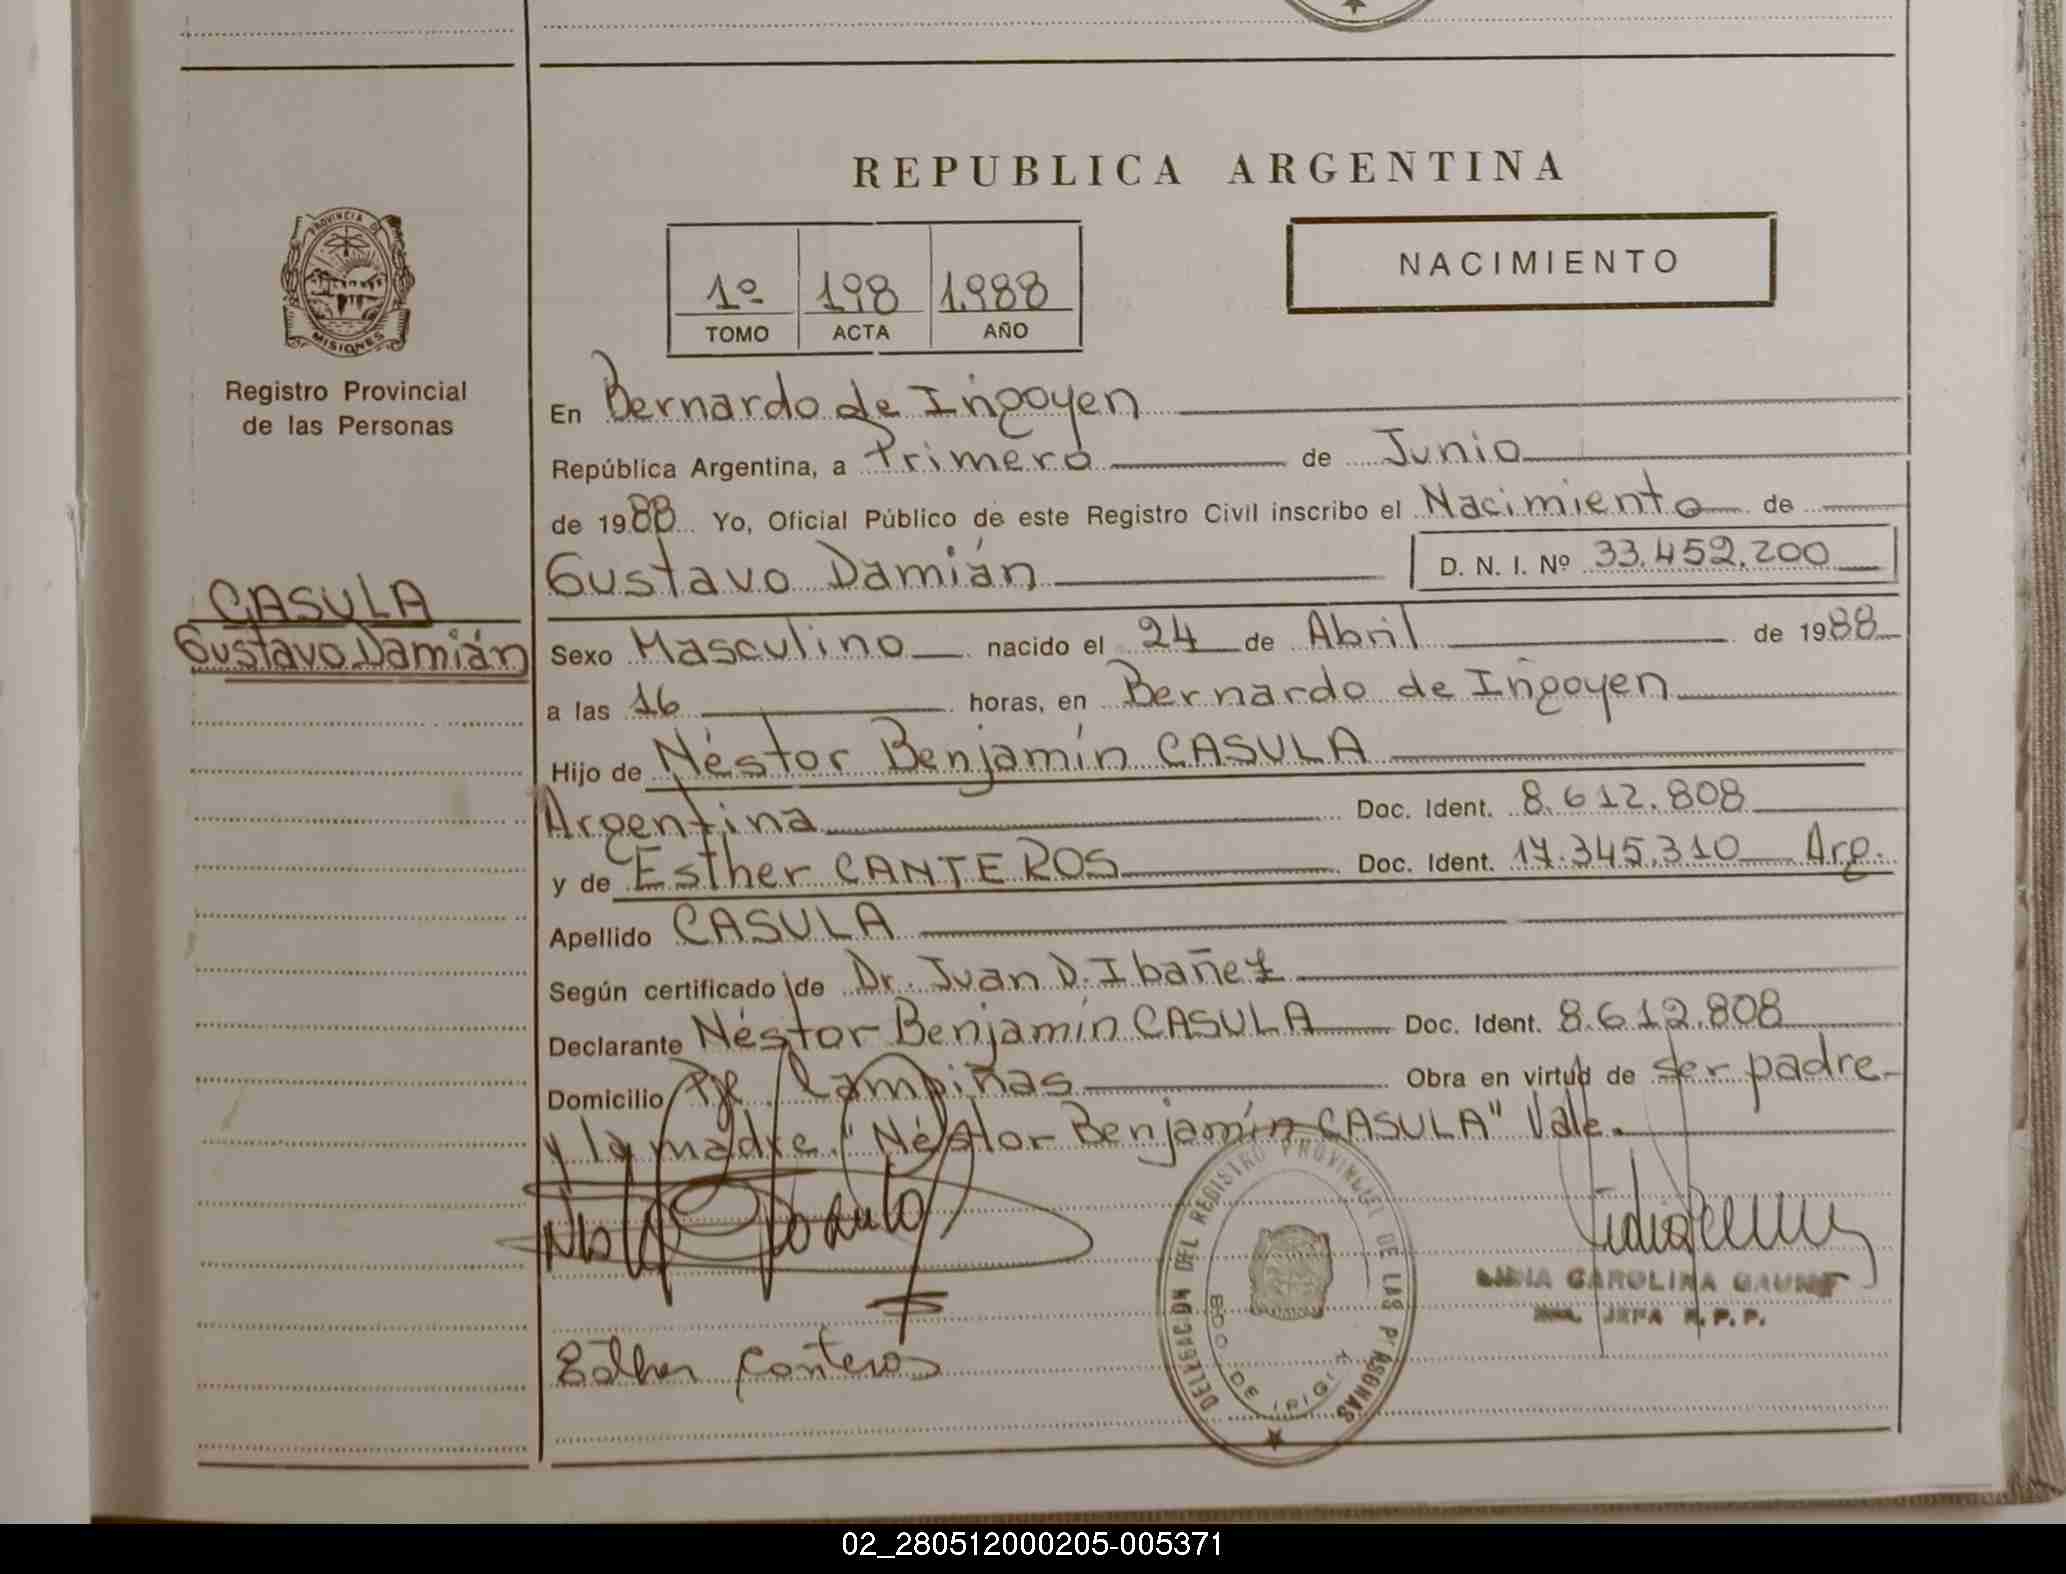 REPUBLICA ARGENTINA
PROVINCIA DE
MISIONES
Registro Provincial
de las Personas
1º 198 1988
TOMO ACTA AÑO
NACIMIENTO
En Bernardo de Irigoyen
República Argentina, a Primero de Junio
de 1988 Yo, Oficial Público de este Registro Civil inscribo el Nacimiento de
Gustavo Damián D. N. I. Nº 33.452.200
CASULA
Gustavo Damián
Sexo Masculino nacido el 24 de Abril de 1988
a las 16 horas, en Bernardo de Irigoyen
Hijo de Néstor Benjamín CASULA
Argentina Doc. Ident. 8.612.808
y de Esther CANTEROS Doc. Ident. 17.345.310 Arg.
Apellido CASULA
Según certificado de Dr. Juan D. Ibañez
Declarante Néstor Benjamín CASULA Doc. Ident. 8.612.808
Domicilio Pje. Campiñas Obra en virtud de ser padre
y la madre. "Néstor Benjamín CASULA" Vale.
DELEGACION DEL REGISTRO PROVINCIAL DE LAS PERSONAS
BDO DE IRIG
CAROLINA
JEFA R. P. P.
Esther Canteros
02_280512000205-005371